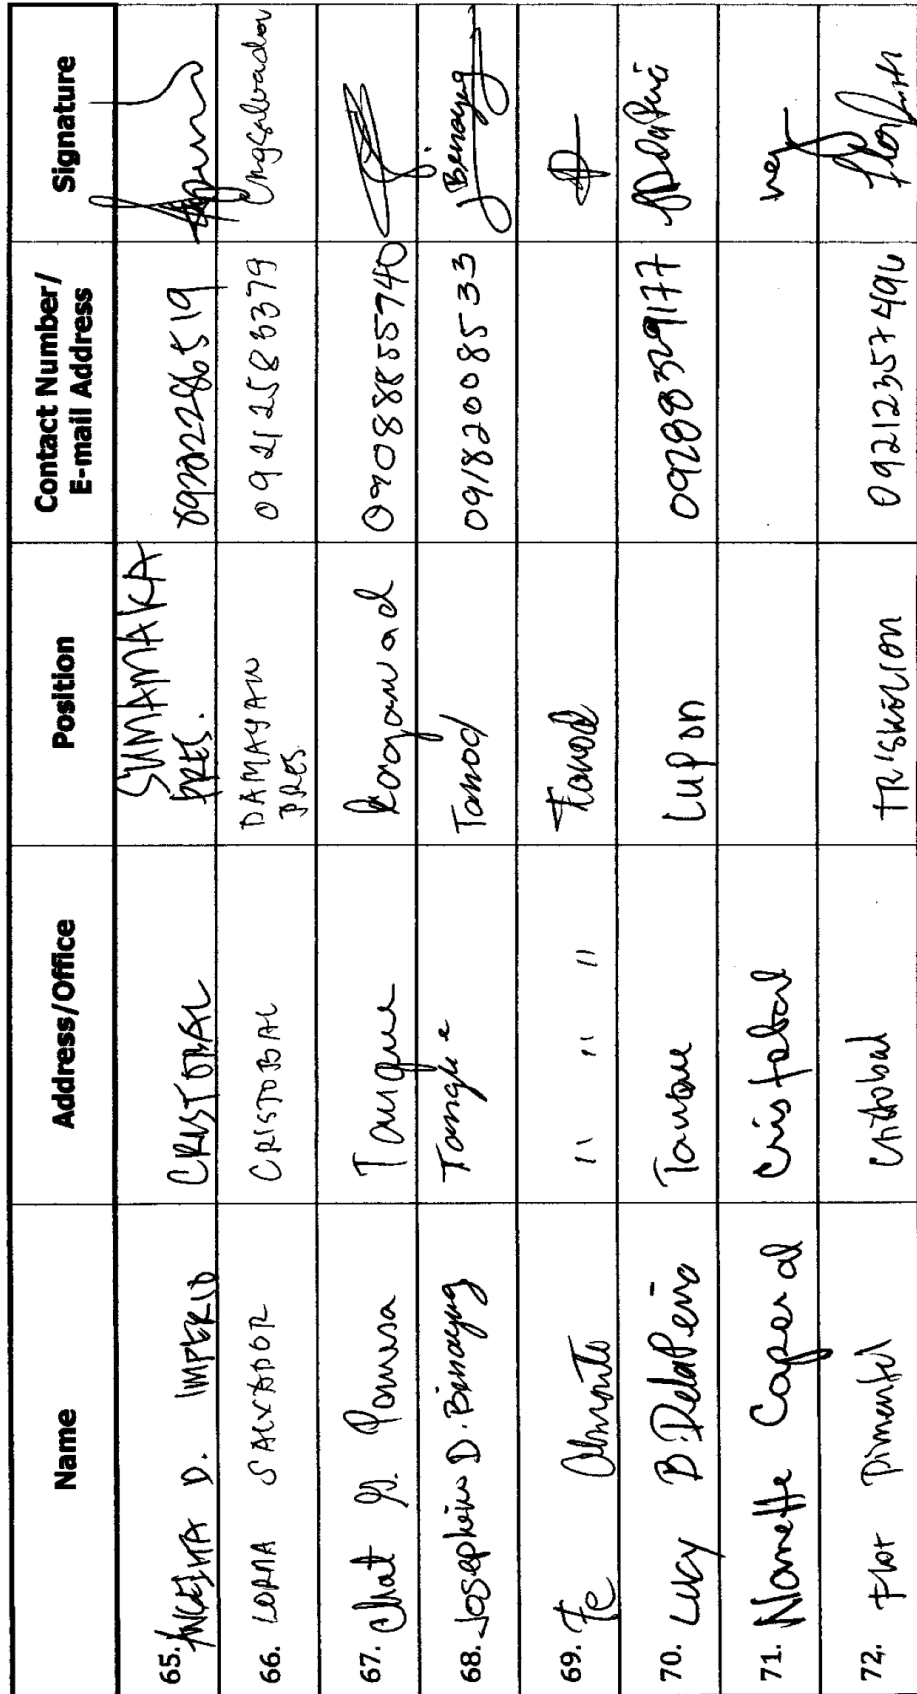 Name Address/Office Position Contact Number/ E-mail Address Signature
65. D. IMPERIO CRISTOBAL SUMAMAKA PRES. 09202286519
66. LORNA SALVADOR CRISTOBAL DAMAYAN PRES. 09212583379 Lmgsalvador
67. Chat Tanque Kagawad 09088855740
68. Josephine D. Binayug Tanque Tanod 09182008533 JBenayug
69. Fe Almonte " " " Tanod
70. Lucy B. DelaPeña Tanque Lupon 09288329177
71. Nanette Caparal Cristobal
72. Flor Pimentel Cristobal 09212357496